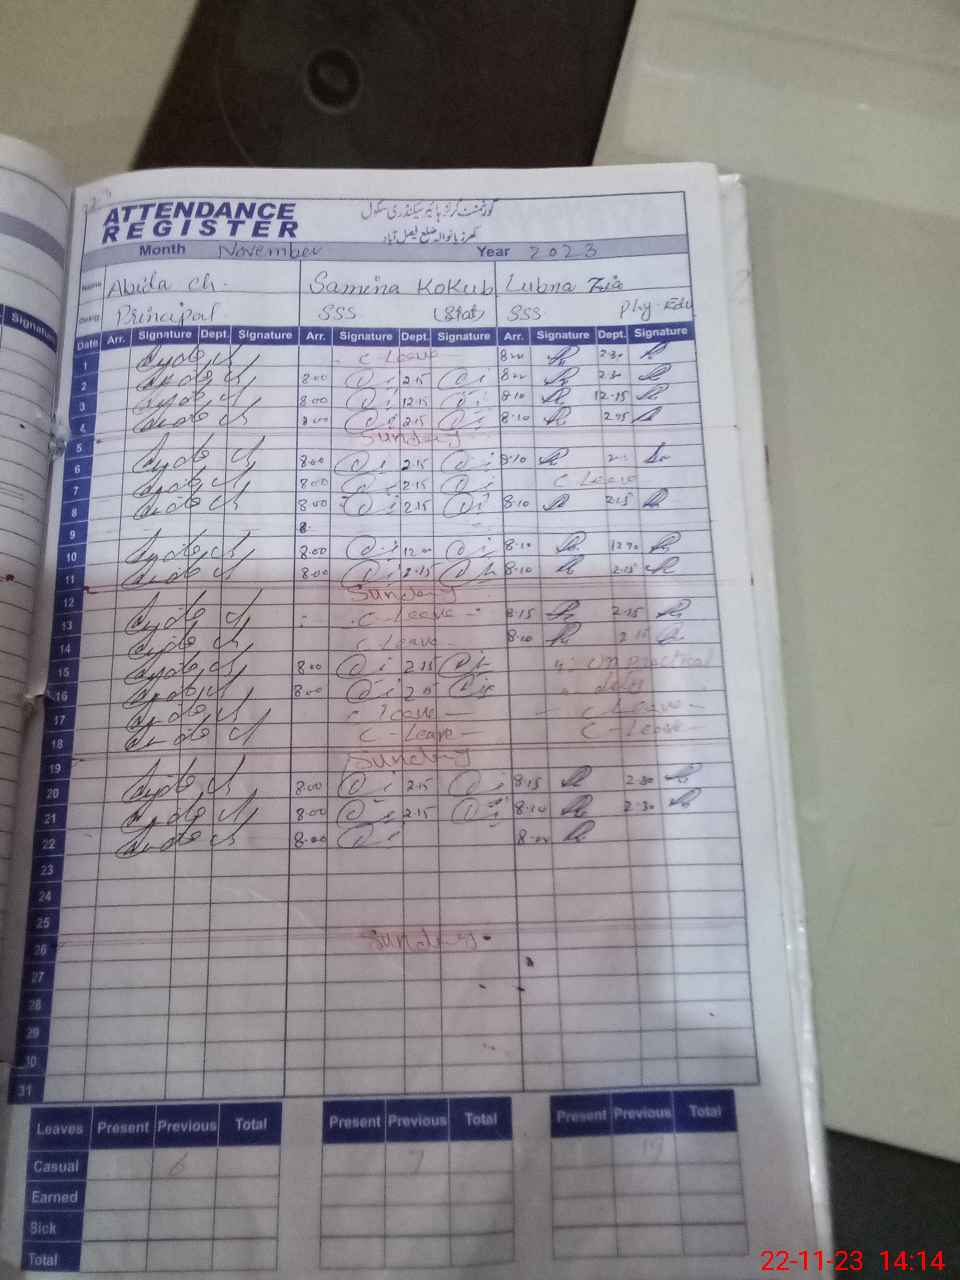 ATTENDANCE
REGISTER
گورنمنٹ گرلز ہائیر سیکنڈری سکول
ضلع فیصل آباد
Month November Year 2023
Name Abida Ch. Samina Kokub Lubna Zia
Desig. Principal SSS (Stat) SSS Phy-Edu
Signature
Date Arr. Signature Dept. Signature Arr. Signature Dept. Signature Arr. Signature Dept. Signature
1 C-Leave 8:00 2:30
2 8:00 2:15 8:00 2:30
3 8:00 12:15 8:10 12:15
4 8:00 2:15 8:10 2:15
5 Sunday
6 8:00 2:15 8:10
7 8:00 2:15 C Leave
8 8:00 2:15 8:10 2:15
9 8:
10 8:00 8:10
11 8:00 2:15 8:10 2:15
12 Sunday
13 C-Leave 8:15 2:15
14 C Leave 8:10 2:15
15 8:00 2:15 on practical
16 8:00 duty
17 C Leave C-Leave
18 C-Leave C-Leave
19 Sunday
20 8:00 2:15 8:15 2:30
21 8:00 2:15 8:10 2:30
22 8:00 8:00
23
24
25
26 Sunday
27
28
29
30
31
Leaves Present Previous Total Present Previous Total Present Previous Total
Casual 6 7 19
Earned
Sick
Total
22-11-23 14:14